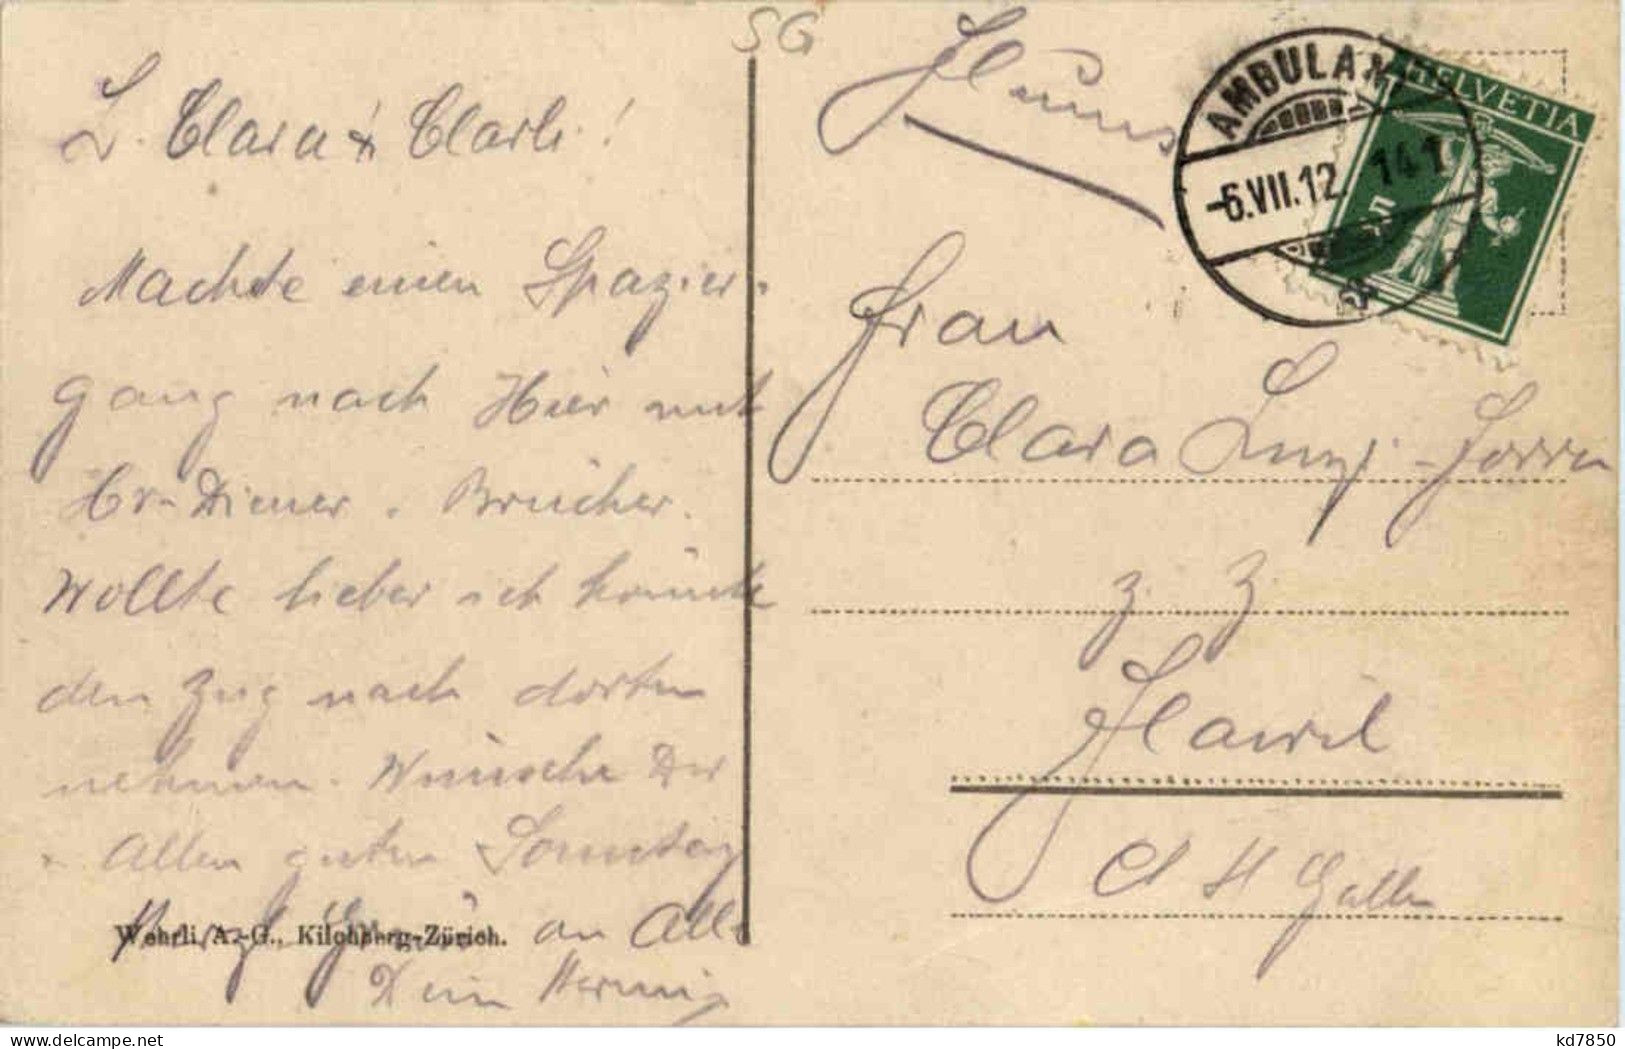 SG
L. Clara & Clärli!
Machte einen Spazier-
gang nach Hier mit
Hr. Diener, Brücher.
Wollte lieber ich könnte
den Zug nach dorten
nehmen. Wünsche Dir
+ Allen guten Sonntag
Herzl. Gruss an Alle
Dein
Wehrli A.-G., Kilchberg-Zürich.
AMBULANT
-6.VII.12. 141
HELVETIA
5
Frau
Clara Luzi-
z. Z.
Flawil
Ct St Gallen
kd7850
delcampe.net